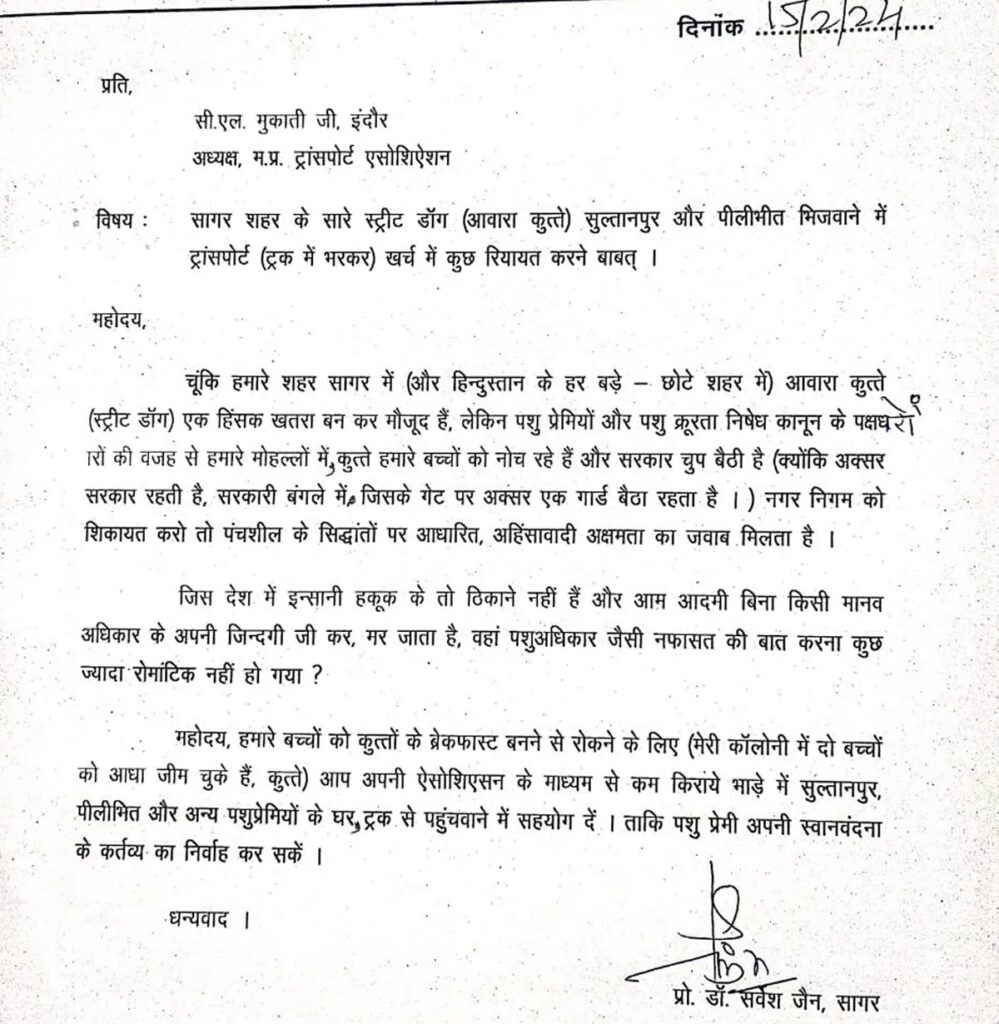 दिनांक 15/2/24
प्रति,
सी.एल. मुकाती जी, इंदौर
अध्यक्ष, म.प्र. ट्रांसपोर्ट एसोशिऐशन
विषय : सागर शहर के सारे स्ट्रीट डॉग (आवारा कुत्ते) सुल्तानपुर और पीलीभीत भिजवाने में
ट्रांसपोर्ट (ट्रक में भरकर) खर्च में कुछ रियायत करने बाबत् ।
महोदय,
चूंकि हमारे शहर सागर में (और हिन्दुस्तान के हर बड़े – छोटे शहर में) आवारा कुत्ते
(स्ट्रीट डॉग) एक हिंसक खतरा बन कर मौजूद हैं, लेकिन पशु प्रेमियों और पशु क्रूरता निषेध कानून के पक्षधरों
रों की वजह से हमारे मोहल्लों में, कुत्ते हमारे बच्चों को नोच रहे हैं और सरकार चुप बैठी है (क्योंकि अक्सर
सरकार रहती है, सरकारी बंगले में, जिसके गेट पर अक्सर एक गार्ड बैठा रहता है । ) नगर निगम को
शिकायत करो तो पंचशील के सिद्धांतों पर आधारित, अहिंसावादी अक्षमता का जवाब मिलता है ।
जिस देश में इन्सानी हकूक के तो ठिकाने नहीं हैं और आम आदमी बिना किसी मानव
अधिकार के अपनी जिन्दगी जी कर, मर जाता है, वहां पशुअधिकार जैसी नफासत की बात करना कुछ
ज्यादा रोमांटिक नहीं हो गया ?
महोदय, हमारे बच्चों को कुत्तों के ब्रेकफास्ट बनने से रोकने के लिए (मेरी कॉलोनी में दो बच्चों
को आधा जीम चुके हैं, कुत्ते) आप अपनी ऐसोशिएसन के माध्यम से कम किराये भाड़े में सुल्तानपुर,
पीलीभित और अन्य पशुप्रेमियों के घर, ट्रक से पहुंचवाने में सहयोग दें । ताकि पशु प्रेमी अपनी स्वानवंदना
के कर्तव्य का निर्वाह कर सकें ।
धन्यवाद ।
प्रो. डॉ. सर्वेश जैन, सागर